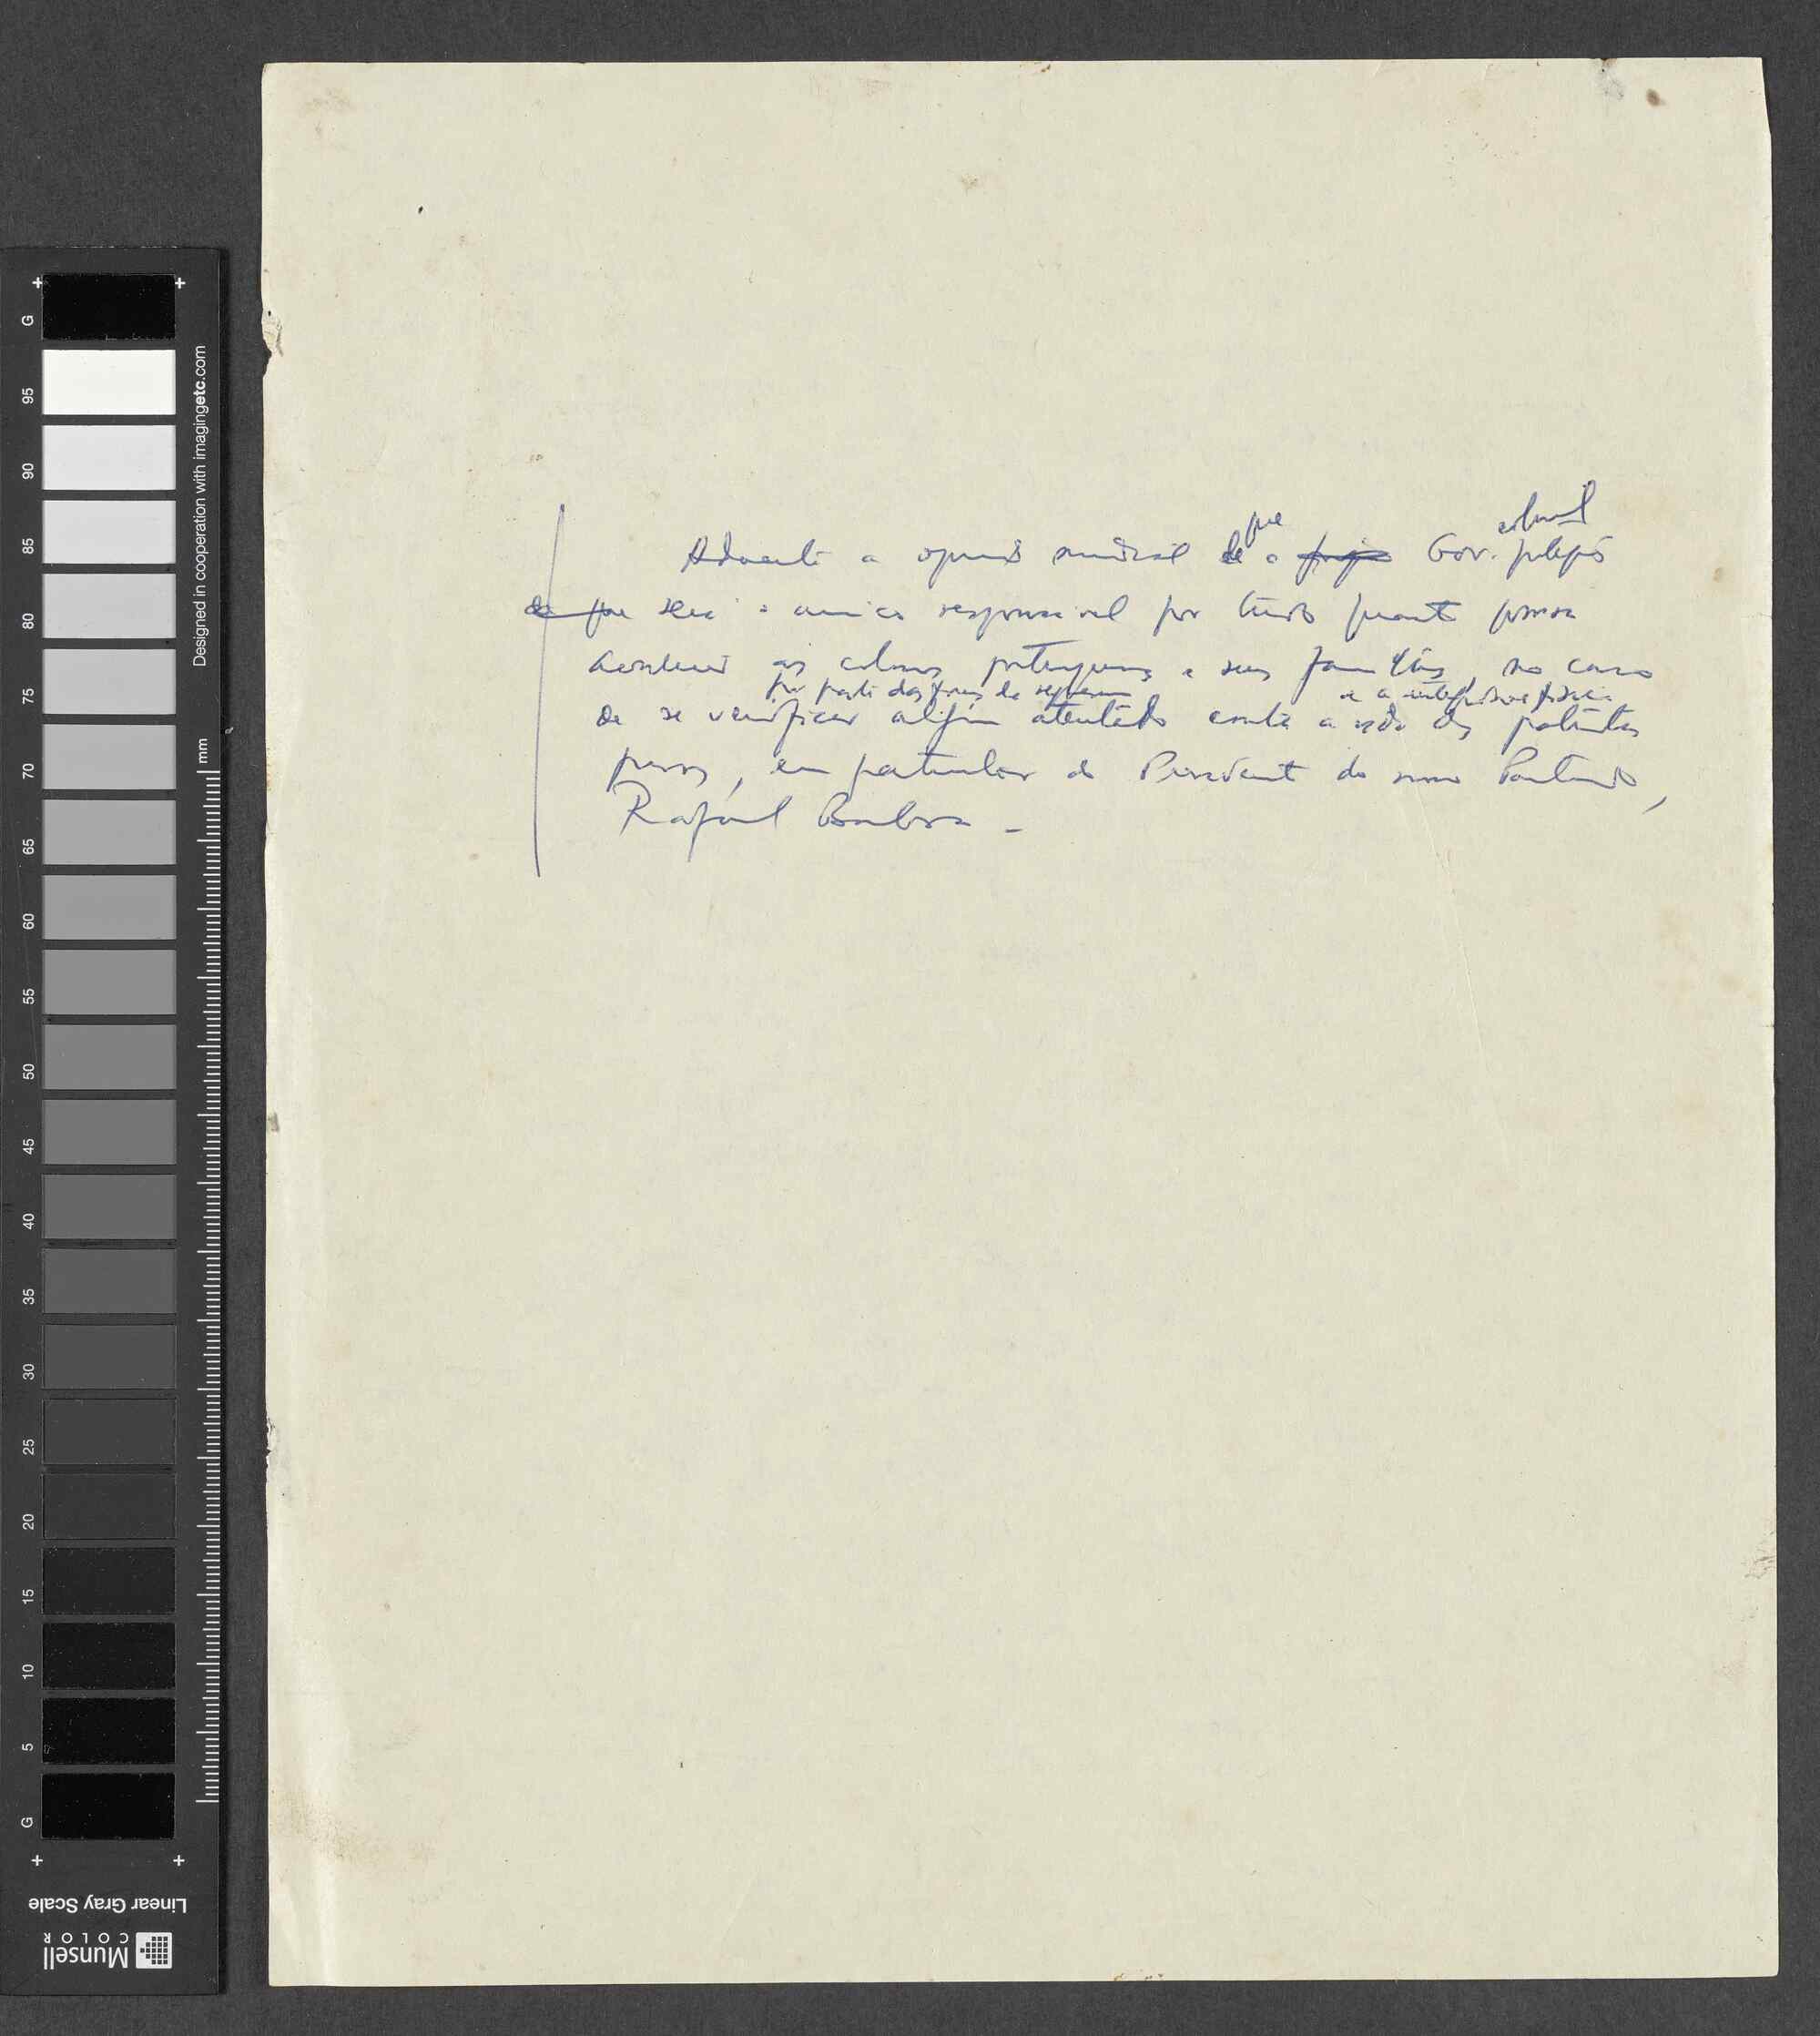 G
95
90
85
80
75
70
65
60
55
50
45
40
35
30
25
20
15
10
5
G
Designed in cooperation with imagingetc.com
mm
Linear Gray Scale
Munsell
COLOR
que colonial
Advertir a opinião mundial de o Gov. português
de que será o único responsável por tudo quanto possa
acontecer aos colonos portugueses e suas famílias, no caso
por parte das forças de repressão e a integridade física
de se verificar algum atentado contra a vida dos patriotas
presos, em particular do Presidente do nosso Partido,
Rafael Barbosa -